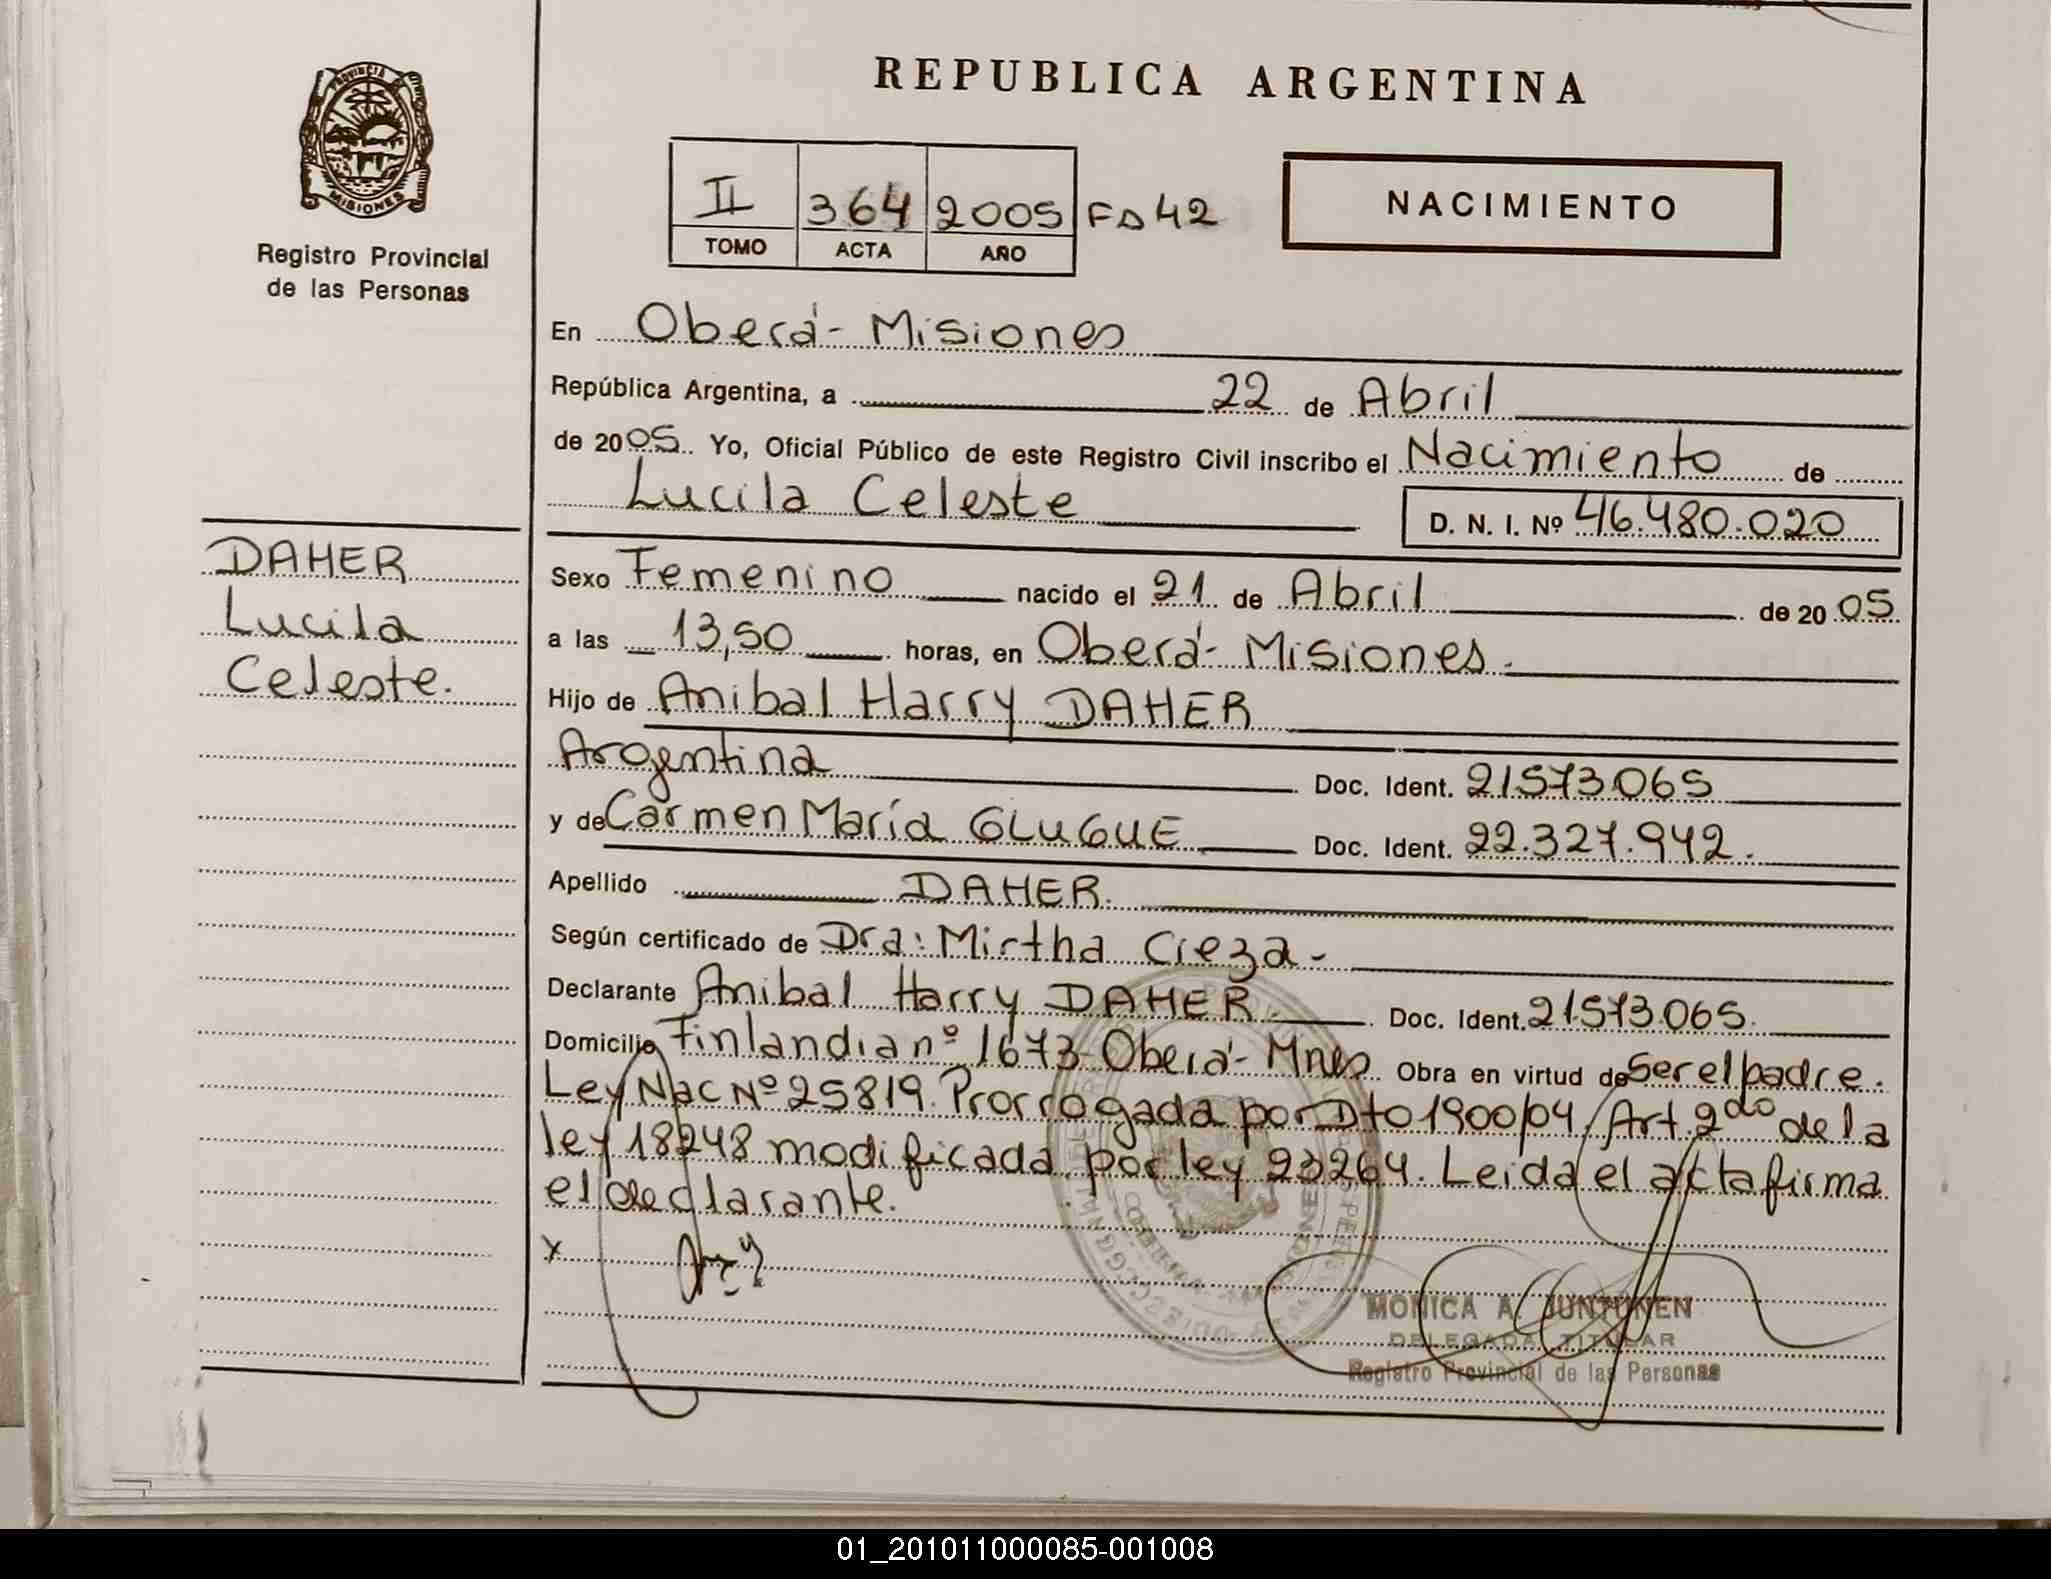 REPUBLICA ARGENTINA
PROVINCIA
MISIONES
Registro Provincial
de las Personas
II 364 2005 Fo 42
TOMO ACTA AÑO
NACIMIENTO
En Oberá - Misiones
República Argentina, a 22 de Abril
de 2005. Yo, Oficial Público de este Registro Civil inscribo el Nacimiento de
Lucila Celeste D. N. I. Nº 46.480.020
DAHER
Lucila
Celeste.
Sexo Femenino nacido el 21 de Abril de 2005
a las 13,50 horas, en Oberá - Misiones.
Hijo de Anibal Harry DAHER
Argentina Doc. Ident. 21573065
y de Carmen María GLUGUE Doc. Ident. 22.327.942.
Apellido DAHER.
Según certificado de Dra: Mirtha Cieza -
Declarante Anibal Harry DAHER. Doc. Ident. 21573065.
Domicilio Finlandia nº 1673 - Oberá - Mnes Obra en virtud de Ser el padre.
Ley Nac Nº 25819. Prorrogada por Dto 1900/04. Art. 2do de la
ley 18248 modificada por ley 23264. Leida el acta firma
el declarante.
x
MONICA A. JUNTUNEN
DELEGADA TITULAR
Registro Provincial de las Personas
01_201011000085-001008